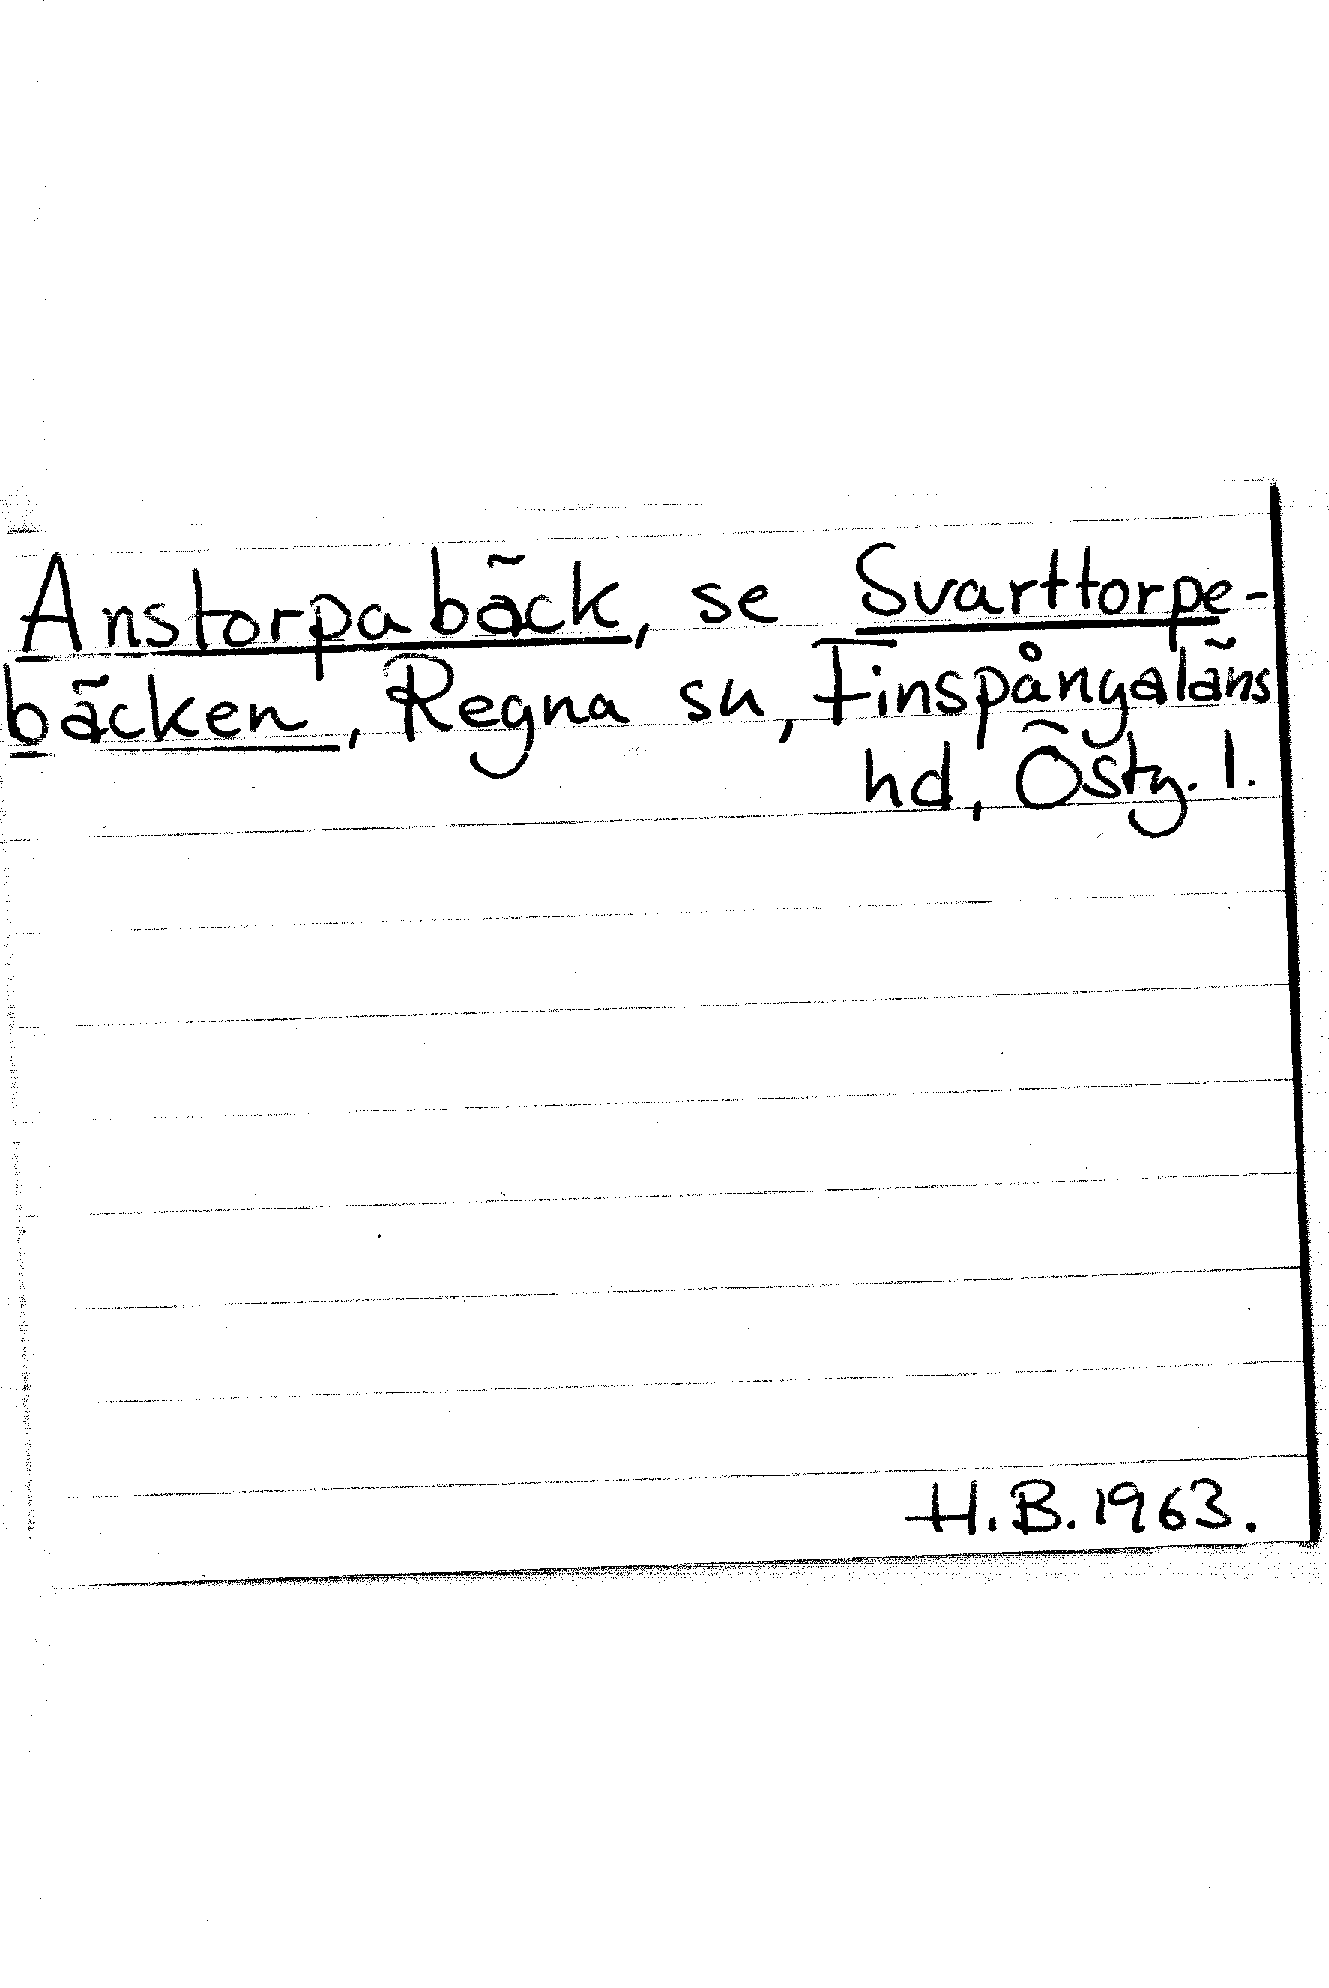 Anstorpabäck, se Svarttorpe-
bäcken, Regna sn, Finspångaläns
hd, Östg. l.
H.B. 1963.